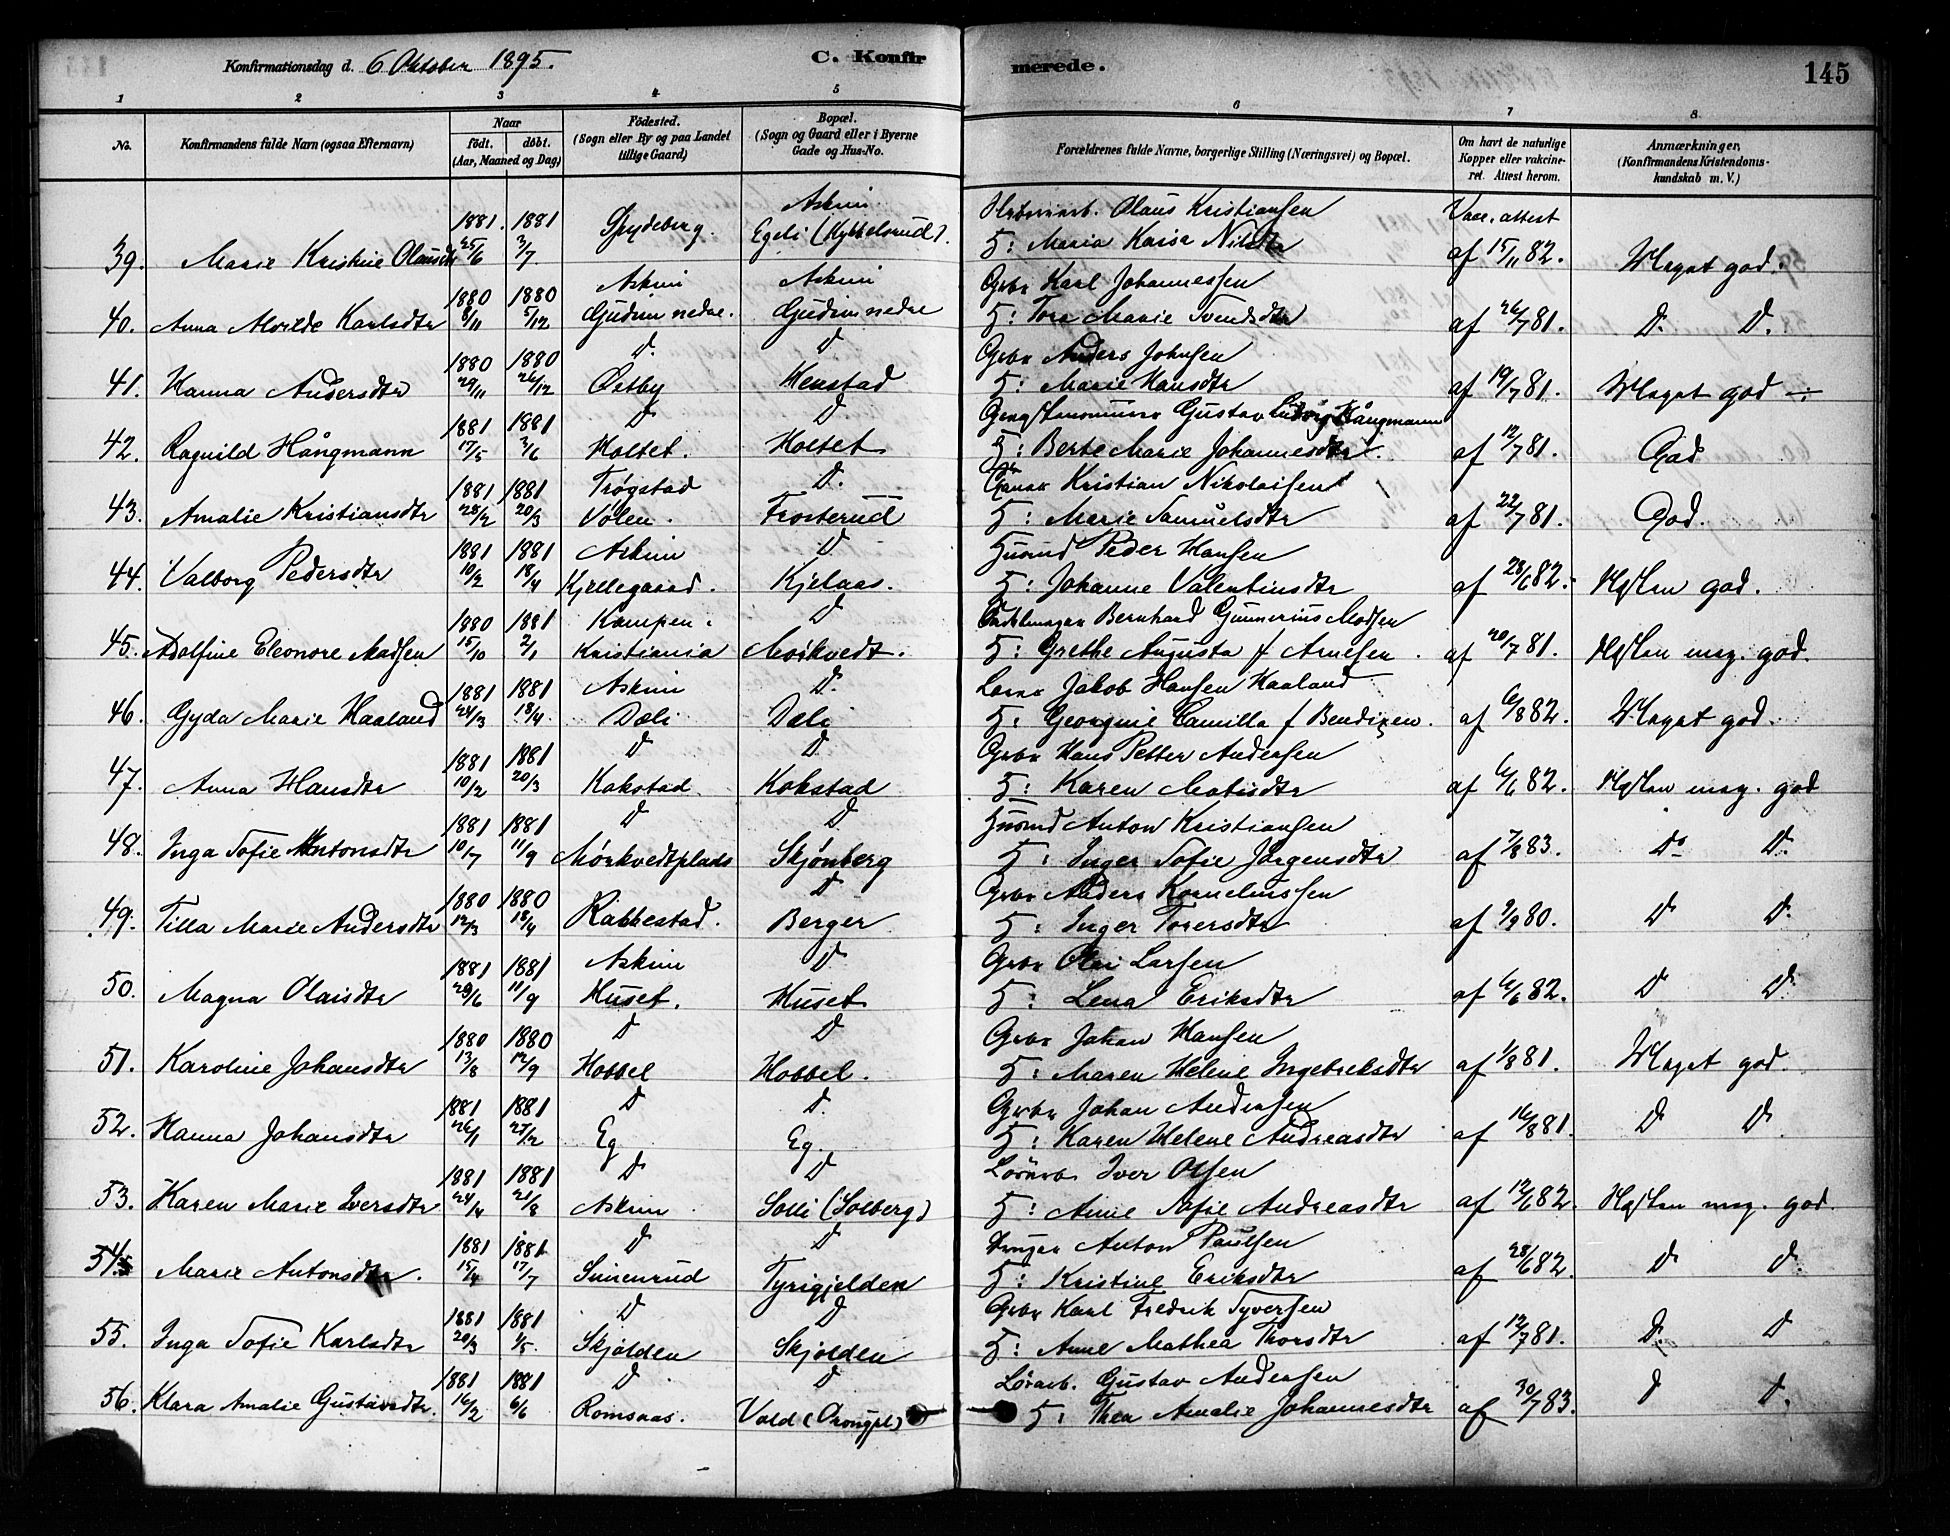 Konfirmationsdag d. 6 Oktober 1895.
C. Konfirmerede.
145
1 2 3 4 5 6 7 8
No. Konfirmandens fulde Navn (ogsaa Efternavn) Naar födt. döbt. (Aar, Maaned og Dag) Födested. (Sogn eller By og paa Landet tillige Gaard) Bopæl. (Sogn og Gaard eller i Byerne Gade og Hus-No.) Forældrenes fulde Navne, borgerlige Stilling (Næringsvei) og Bopæl. Om havt de naturlige Kopper eller vakcineret. Attest herom. Anmærkninger, (Konfirmandens Kristendomskundskab m. V.)
1881. 1881 Askim Olaus Kristiansen Vacc. attest
39. Marie Kristine Olausdtr 25/6 3/7 Spydeberg. Egeli (Kykkelsrud). H: Maria Kaisa Nilsdtr af 15/11 82. Meget god.
1880 1880 Askim Askim Grbr Karl Johannessen
40. Anna Alvilde Karlsdtr 8/11 5/12 Gudim nedre. Gudim nedre H: Tora Marie Svendsdtr af 26/7 81. D. D.
1880 1880 D. D Grbr Anders Johnsen
41. Hanna Andersdtr 29/11 26/12 Østby Henstad H: Marie Hansdtr af 19/7 81. Meget god
1881 1881 D D. Gustav Ludvig Hångmann
42. Ragnild Hångmann 17/5 3/6 Holtet. Holtet H: Berte Marie Johannesdtr. af 12/7 81. God
1881 1881 Trøgstad D. Kristian Nikolaisen
43. Amalie Kristiansdtr 28/2 20/3 Volen. Frosterud H: Marie Samuelsdtr af 22/7 81. God.
1881 1881 Askim D Husmd Peder Hansen
44. Valborg Pedersdtr 10/2 18/4 Kjellegaard. Kjelaas. H: Johanne Valentinsdtr af 28/6 82. Næsten god.
1880 1881 Kampen D Sadelmager Bernhard Gunnerius Madsen
45. Adolfine Eleonore Madsen 15/10 2/1 Kristiania Mörkvedt. H: Grethe Augusta f Arnesen. af 20/7 81. Næsten meg. god.
1881 1881 Askim D. Lærer Jakob Hansen Haaland
46. Gyda Marie Haaland 24/3 18/4. Dæli Dæli H: Georgine Camilla f Bendixen. af 6/8 82. Meget god.
1881 1881 D D Grbr Hans Petter Andersen
47. Anna Hansdtr 10/2 20/3 Kokstad. Kokstad H: Karen Matisdtr af 6/6 82. Næsten meg. god
1881 1881 D D. Husmd Anton Kristiansen
48. Inga Sofie Antonsdtr 10/7 11/9 Mörkvedtplads Skjønberg H: Inger Sofie Jörgensdtr af 7/8 83. Do D.
1880 1880 D Grbr Anders Korneliussen
49. Tilla Marie Andersdtr 12/3 18/4 Rakkestad. Berger H: Inger Torersdtr af 9/9 80. D D.
1881 1881 Askim D Grbr Olai Larsen
50. Magna Olaisdtr 20/6 11/9 Huset. Huset H: Lena Eriksdtr af 6/6 82. D D.
1880 1880 D D Grbr Johan Hansen
51. Karoline Johansdtr 13/8 12/9 Hobbel Hobbel. H: Maren Helene Ingebreksdtr af 1/8 81. Meget god.
1881 1881 D D. Grbr Johan Andersen
52. Hanna Johansdtr 26/1 27/2 Eg Eg. H: Karen Helene Andreasdtr af 16/8 81. D D.
1881 1881 D D Iver Olsen
53. Karen Marie Iversdtr 24/4 21/8 Askim Solli (Solberg) H: Anne Sofie Andreasdtr af 12/6 82. Næsten meg. god.
1881 1881 D D Anton Paulsen
54. Marie Antonsdtr. 15/4 17/7 Sinenrud Tyrigjelden H: Kristine Eriksdtr af 28/6 82. D D.
1881 1881 D D Grbr Karl Fredrik Syversen
55. Inga Sofie Karlsdtr 20/3 1/5. Skjolden Skjolden H: Anne Mathea Thorsdtr af 12/7 81. D. D
1881 1881 D D Gustav Andersen
56. Klara Amalie Gustavsdtr. 16/2 6/6 Romsaas. Vold H: Thea Amalie Johannesdtr af 30/7 83. D D.